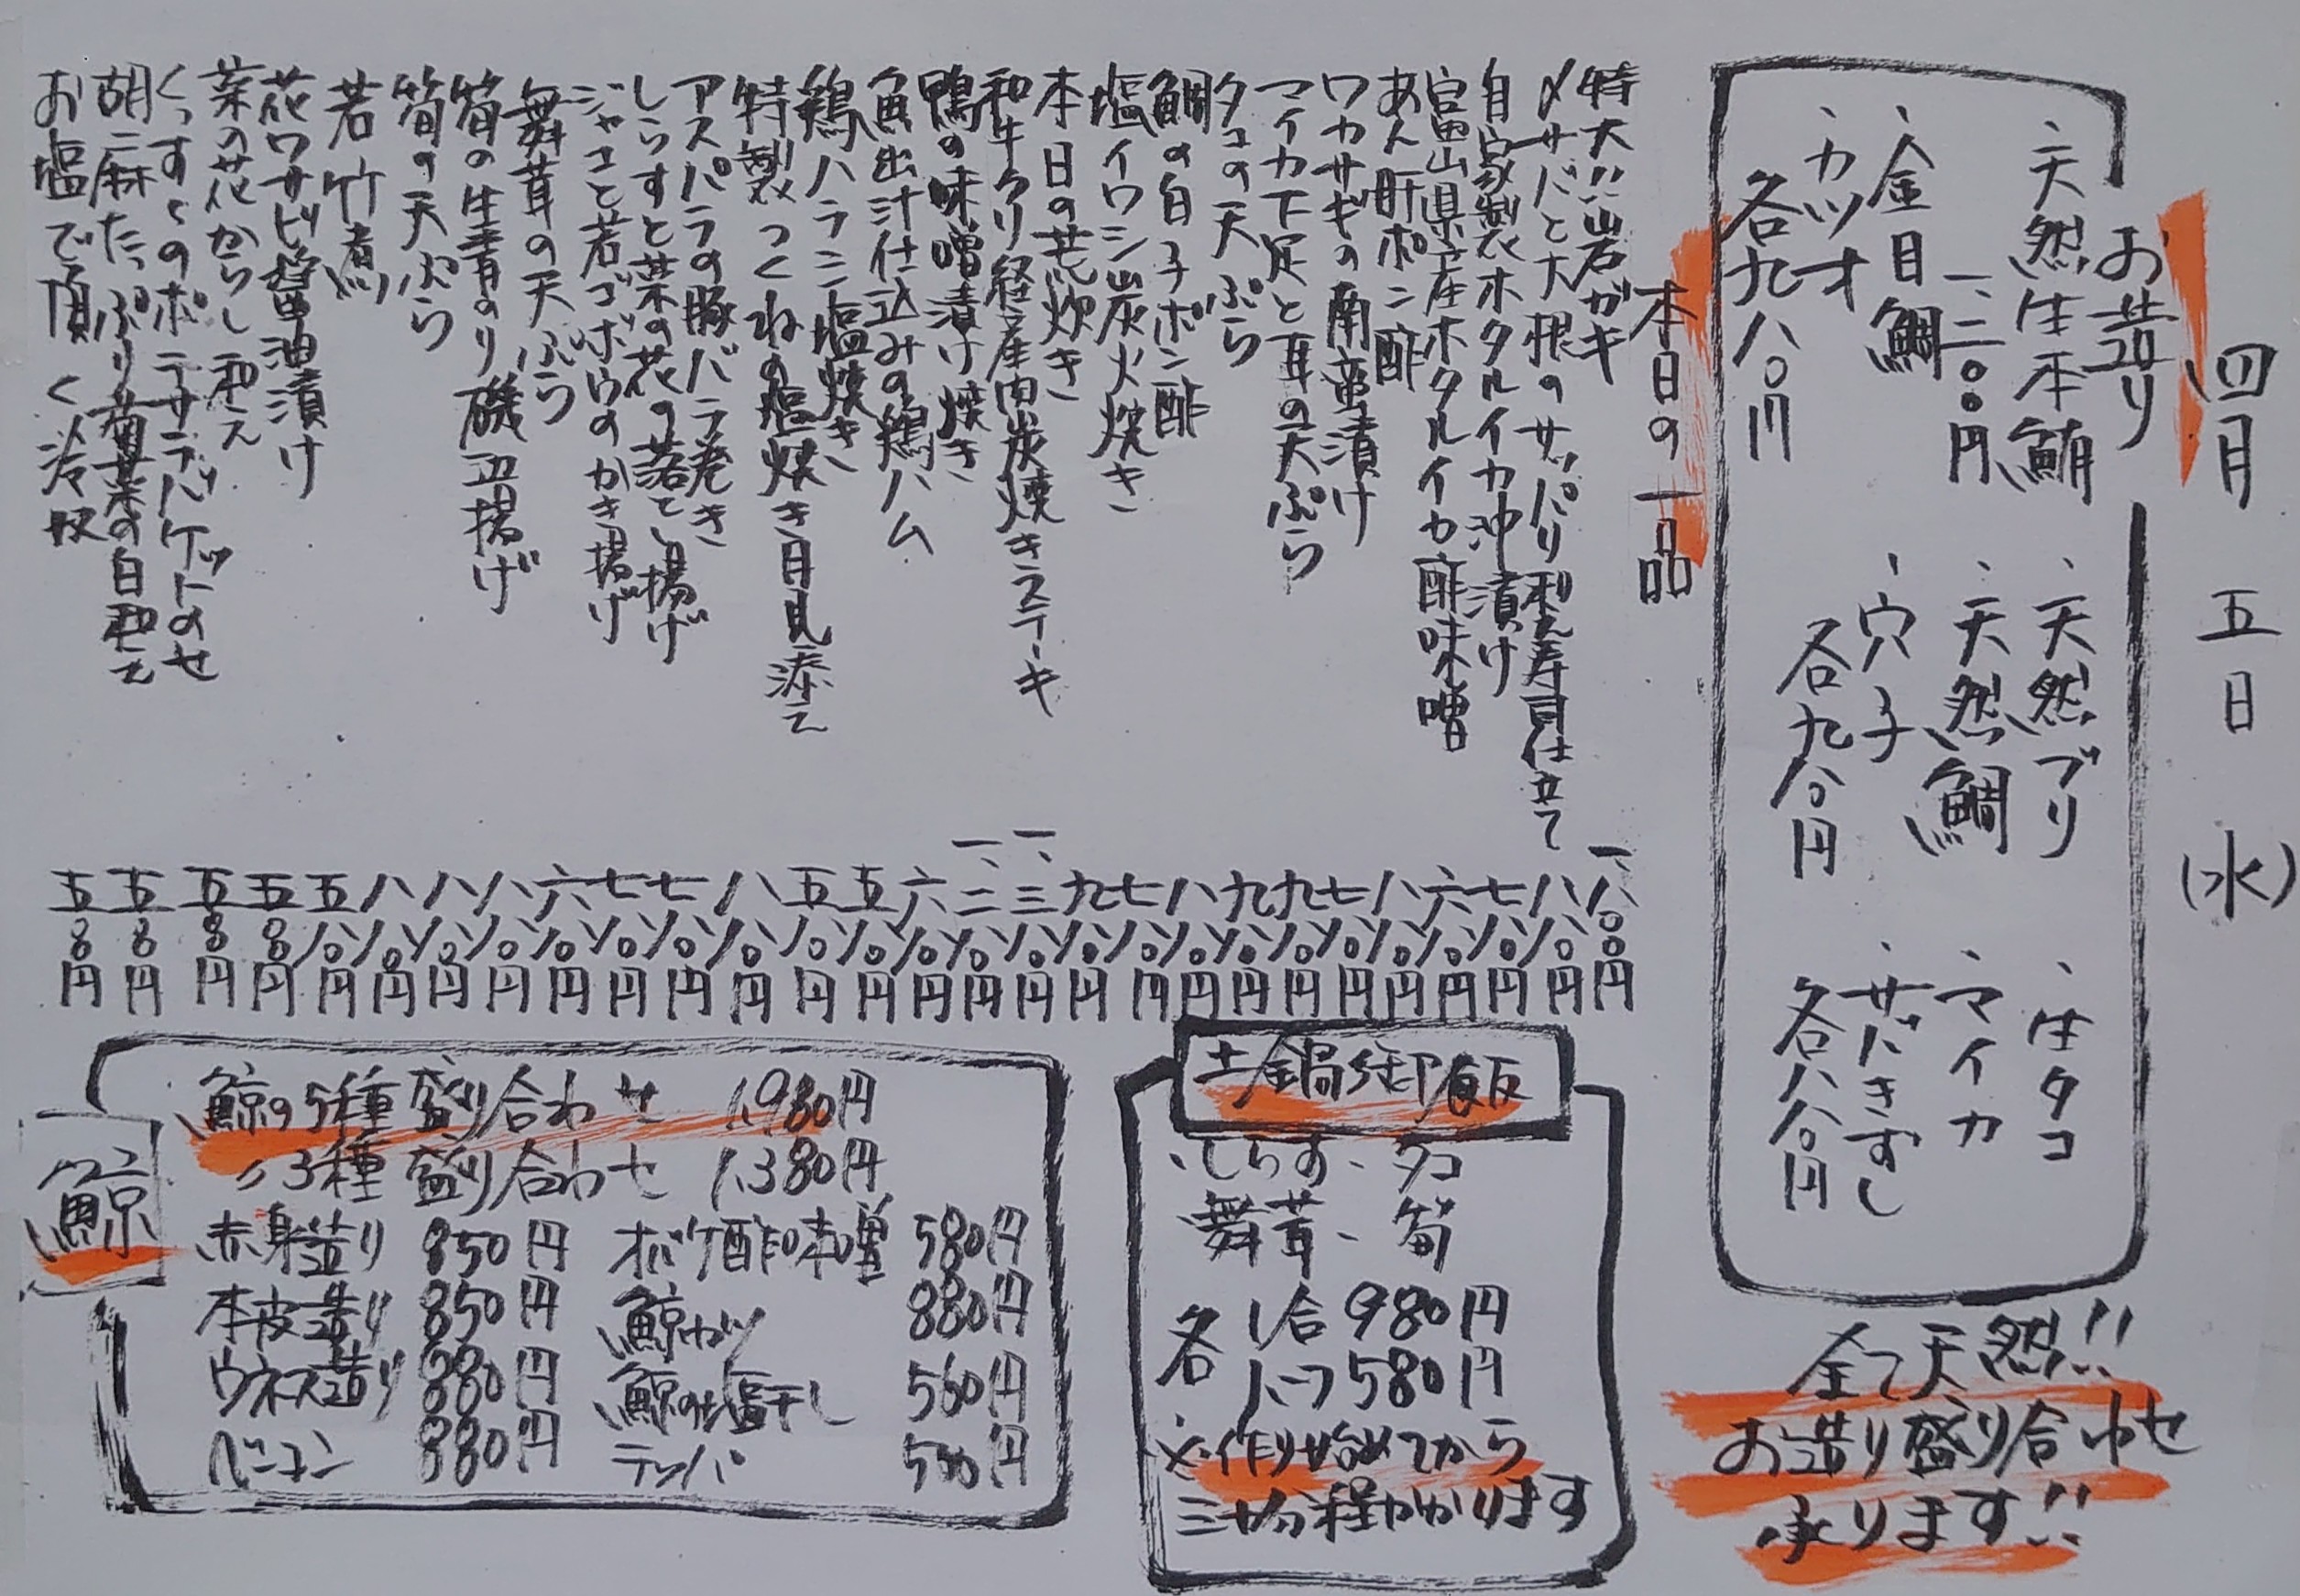 四月五日(水)
お造り
・天然生本鮪
一、二〇〇円
・金目鯛
・カツオ
各九八〇円
・天然ブリ
・天然鯛
・穴子
各九八〇円
・生タコ
・マイカ
・サバきずし
各八八〇円
全て天然!!
お造り盛り合わせ
承ります!!
本日の一品
特大!!岩ガキ 一、八〇〇円
〆サバと大根のサッパリ和え寿司仕立て 八八〇円
自家製ホタルイカ沖漬け 七八〇円
富山県産ホタルイカ酢味噌 六八〇円
あん肝ポン酢 八八〇円
ワカサギの南蛮漬け 七八〇円
マイカ下足と耳の天ぷら 九八〇円
タコの天ぷら 九八〇円
鯛の白子ポン酢 八八〇円
塩イワシ炭火焼き 七八〇円
本日の荒炊き 九八〇円
和牛クリ経産肉炭焼きステーキ 一、三八〇円
鴨の味噌漬け焼き 一、二八〇円
魚出汁仕込みの鶏ハム 六八〇円
鶏ハラミ塩焼き 五八〇円
特製つくねの塩焼き月見添え 五八〇円
アスパラの豚バラ巻き 八八〇円
しらすと菜の花の落とし揚げ 七八〇円
ジャコと若ゴボウのかき揚げ 七八〇円
舞茸の天ぷら 六八〇円
筍の生青のり磯辺揚げ 八八〇円
筍の天ぷら 八八〇円
若竹煮 八八〇円
花ワサビ醤油漬け 五八〇円
菜の花からし和え 五八〇円
くっすぃのポテサラバケットのせ 五八〇円
胡麻たっぷり菊菜の白和え 五八〇円
お塩で頂く冷奴 五八〇円
土鍋御飯
・しらす・タコ
・舞茸・筍
各 1合 980円
ハーフ 580円
※作り始めてから
三十分程かかります
鯨
鯨の5種盛り合わせ 1,980円
〃3種盛り合わせ 1,380円
赤身造り 850円
本皮造り 850円
ウネス造り 880円
ベーコン 880円
オバケ酢味噌 580円
鯨カツ 880円
鯨の塩干し 560円
テッパ 580円